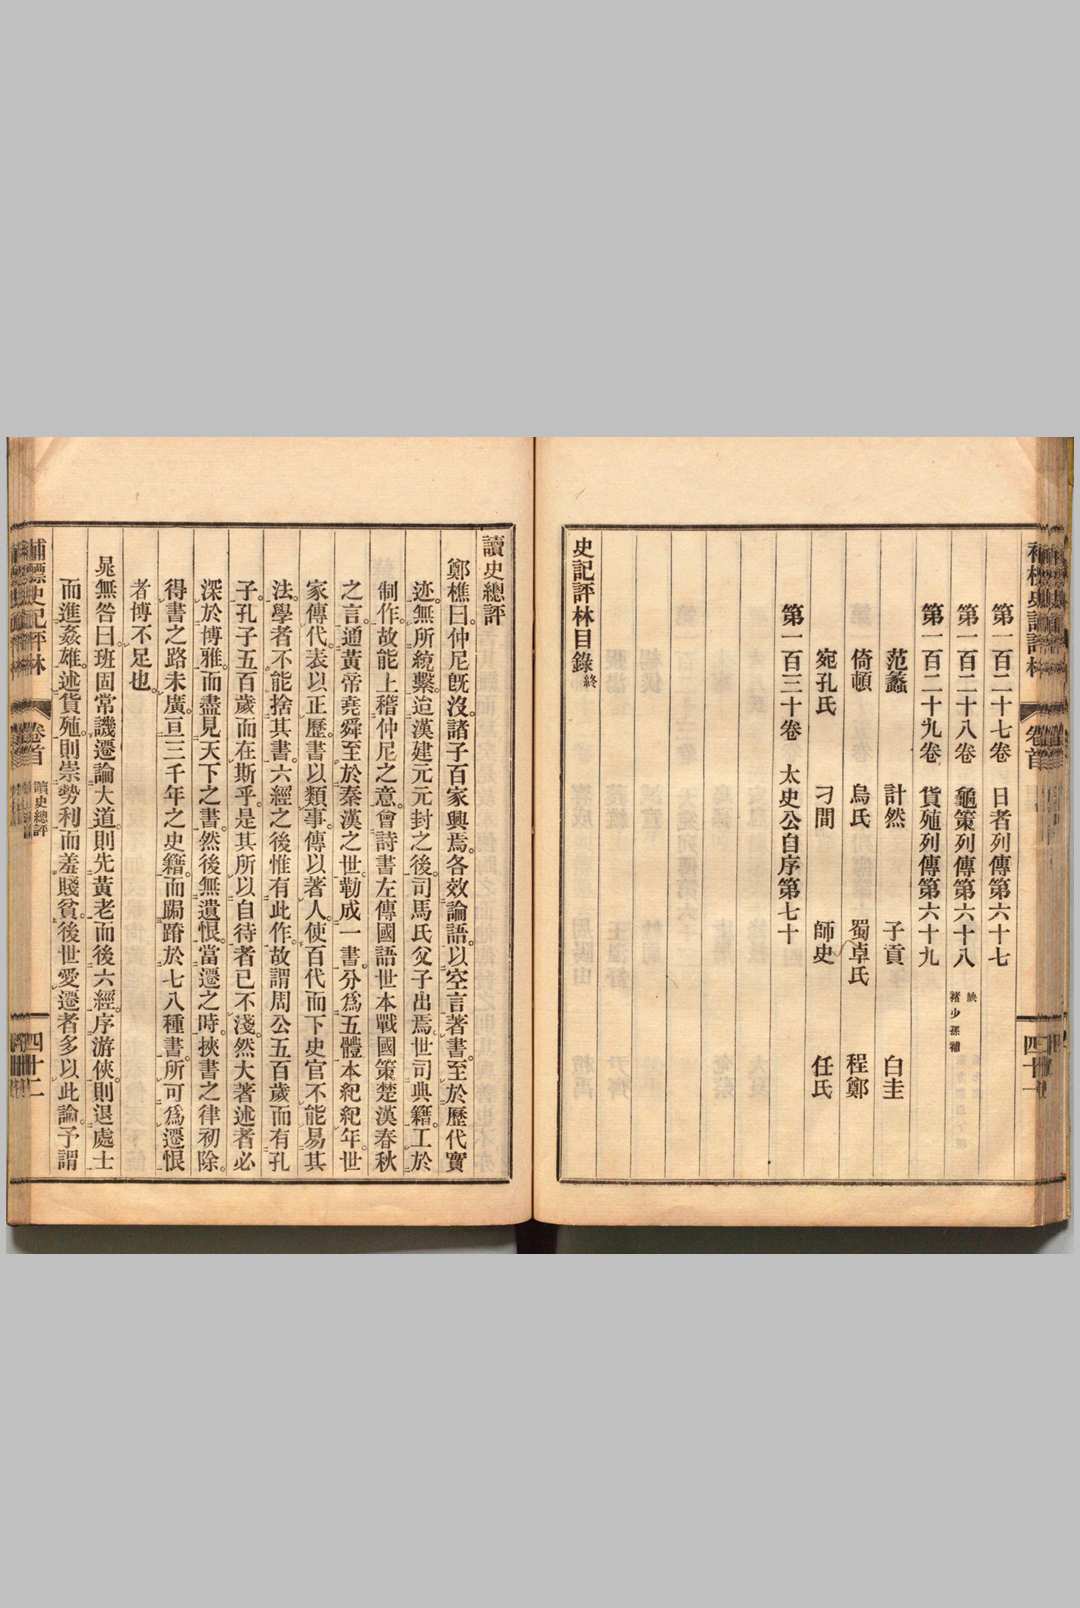 第一百二十七卷　日者列傳第六十七
第一百二十八卷　龜策列傳第六十八　缺　褚少孫補
第一百二十九卷　貨殖列傳第六十九
范蠡　計然　子貢　白圭
倚頓　烏氏　蜀卓氏　程鄭
宛孔氏　刁間　師史　任氏
第一百三十卷　太史公自序第七十
史記評林目錄終
讀史總評
鄭樵曰。仲尼旣沒。諸子百家興焉。各效論語。以空言著書。至於歷代實
迹。無所統繫。迨漢建元元封之後。司馬氏父子出焉。世司典籍。工於
制作。故能上稽仲尼之意。會詩書左傳國語世本戰國策楚漢春秋
之言。通黃帝堯舜至於秦漢之世。勒成一書。分爲五體。本紀紀年。世
家傳代。表以正歷。書以類事。傳以著人。使百代而下史官不能易其
法。學者不能捨其書。六經之後惟有此作。故謂周公五百歲而有孔
子。孔子五百歲而在斯乎。是其所以自待者已不淺。然大著述者必
深於博雅。而盡見天下之書。然後無遺恨。當遷之時。挾書之律初除。
得書之路未廣。亘三千年之史籍。而跼蹐於七八種書。所可爲遷恨
者博不足也。
晁無咎曰。班固常譏遷論大道。則先黃老而後六經。序游俠。則退處士
而進姦雄。述貨殖。則崇勢利而羞賤貧。後世愛遷者多以此論。予謂
補標史記評林　卷首　讀史總評　四十二
補標史記評林　卷首　四十一